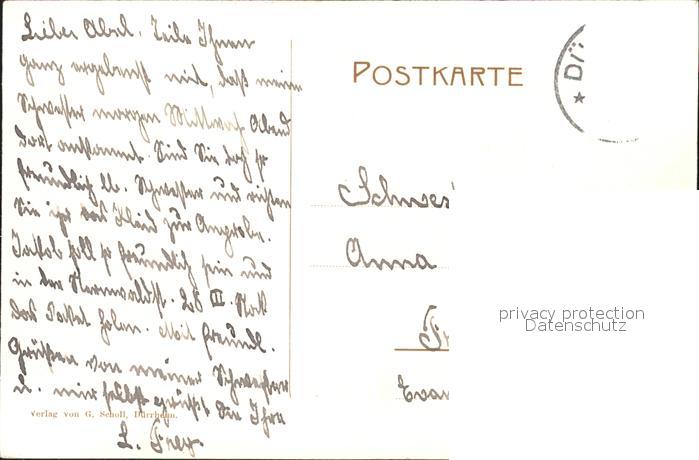 Lieber Abal. Teile Ihnen
ganz ergebenst mit, daß meine
Schwester morgen Mittwoch Abend
dort ankommt. Sind Sie doch so
freundlich u. Schwester und richten
Sie ihr das Kleid zur Anprobe.
Jakob soll so freundlich sein und
in der 28 III. Stock
das Paket holen. Mit freundl.
Grüßen von meiner Schwester
u. mir selbst grüßt Sie Ihre
L. Frey.
Verlag von G. Scholl, Dürrheim.
POSTKARTE
DÜ
Schwes
Anna
Fr
Evan
privacy protection
Datenschutz